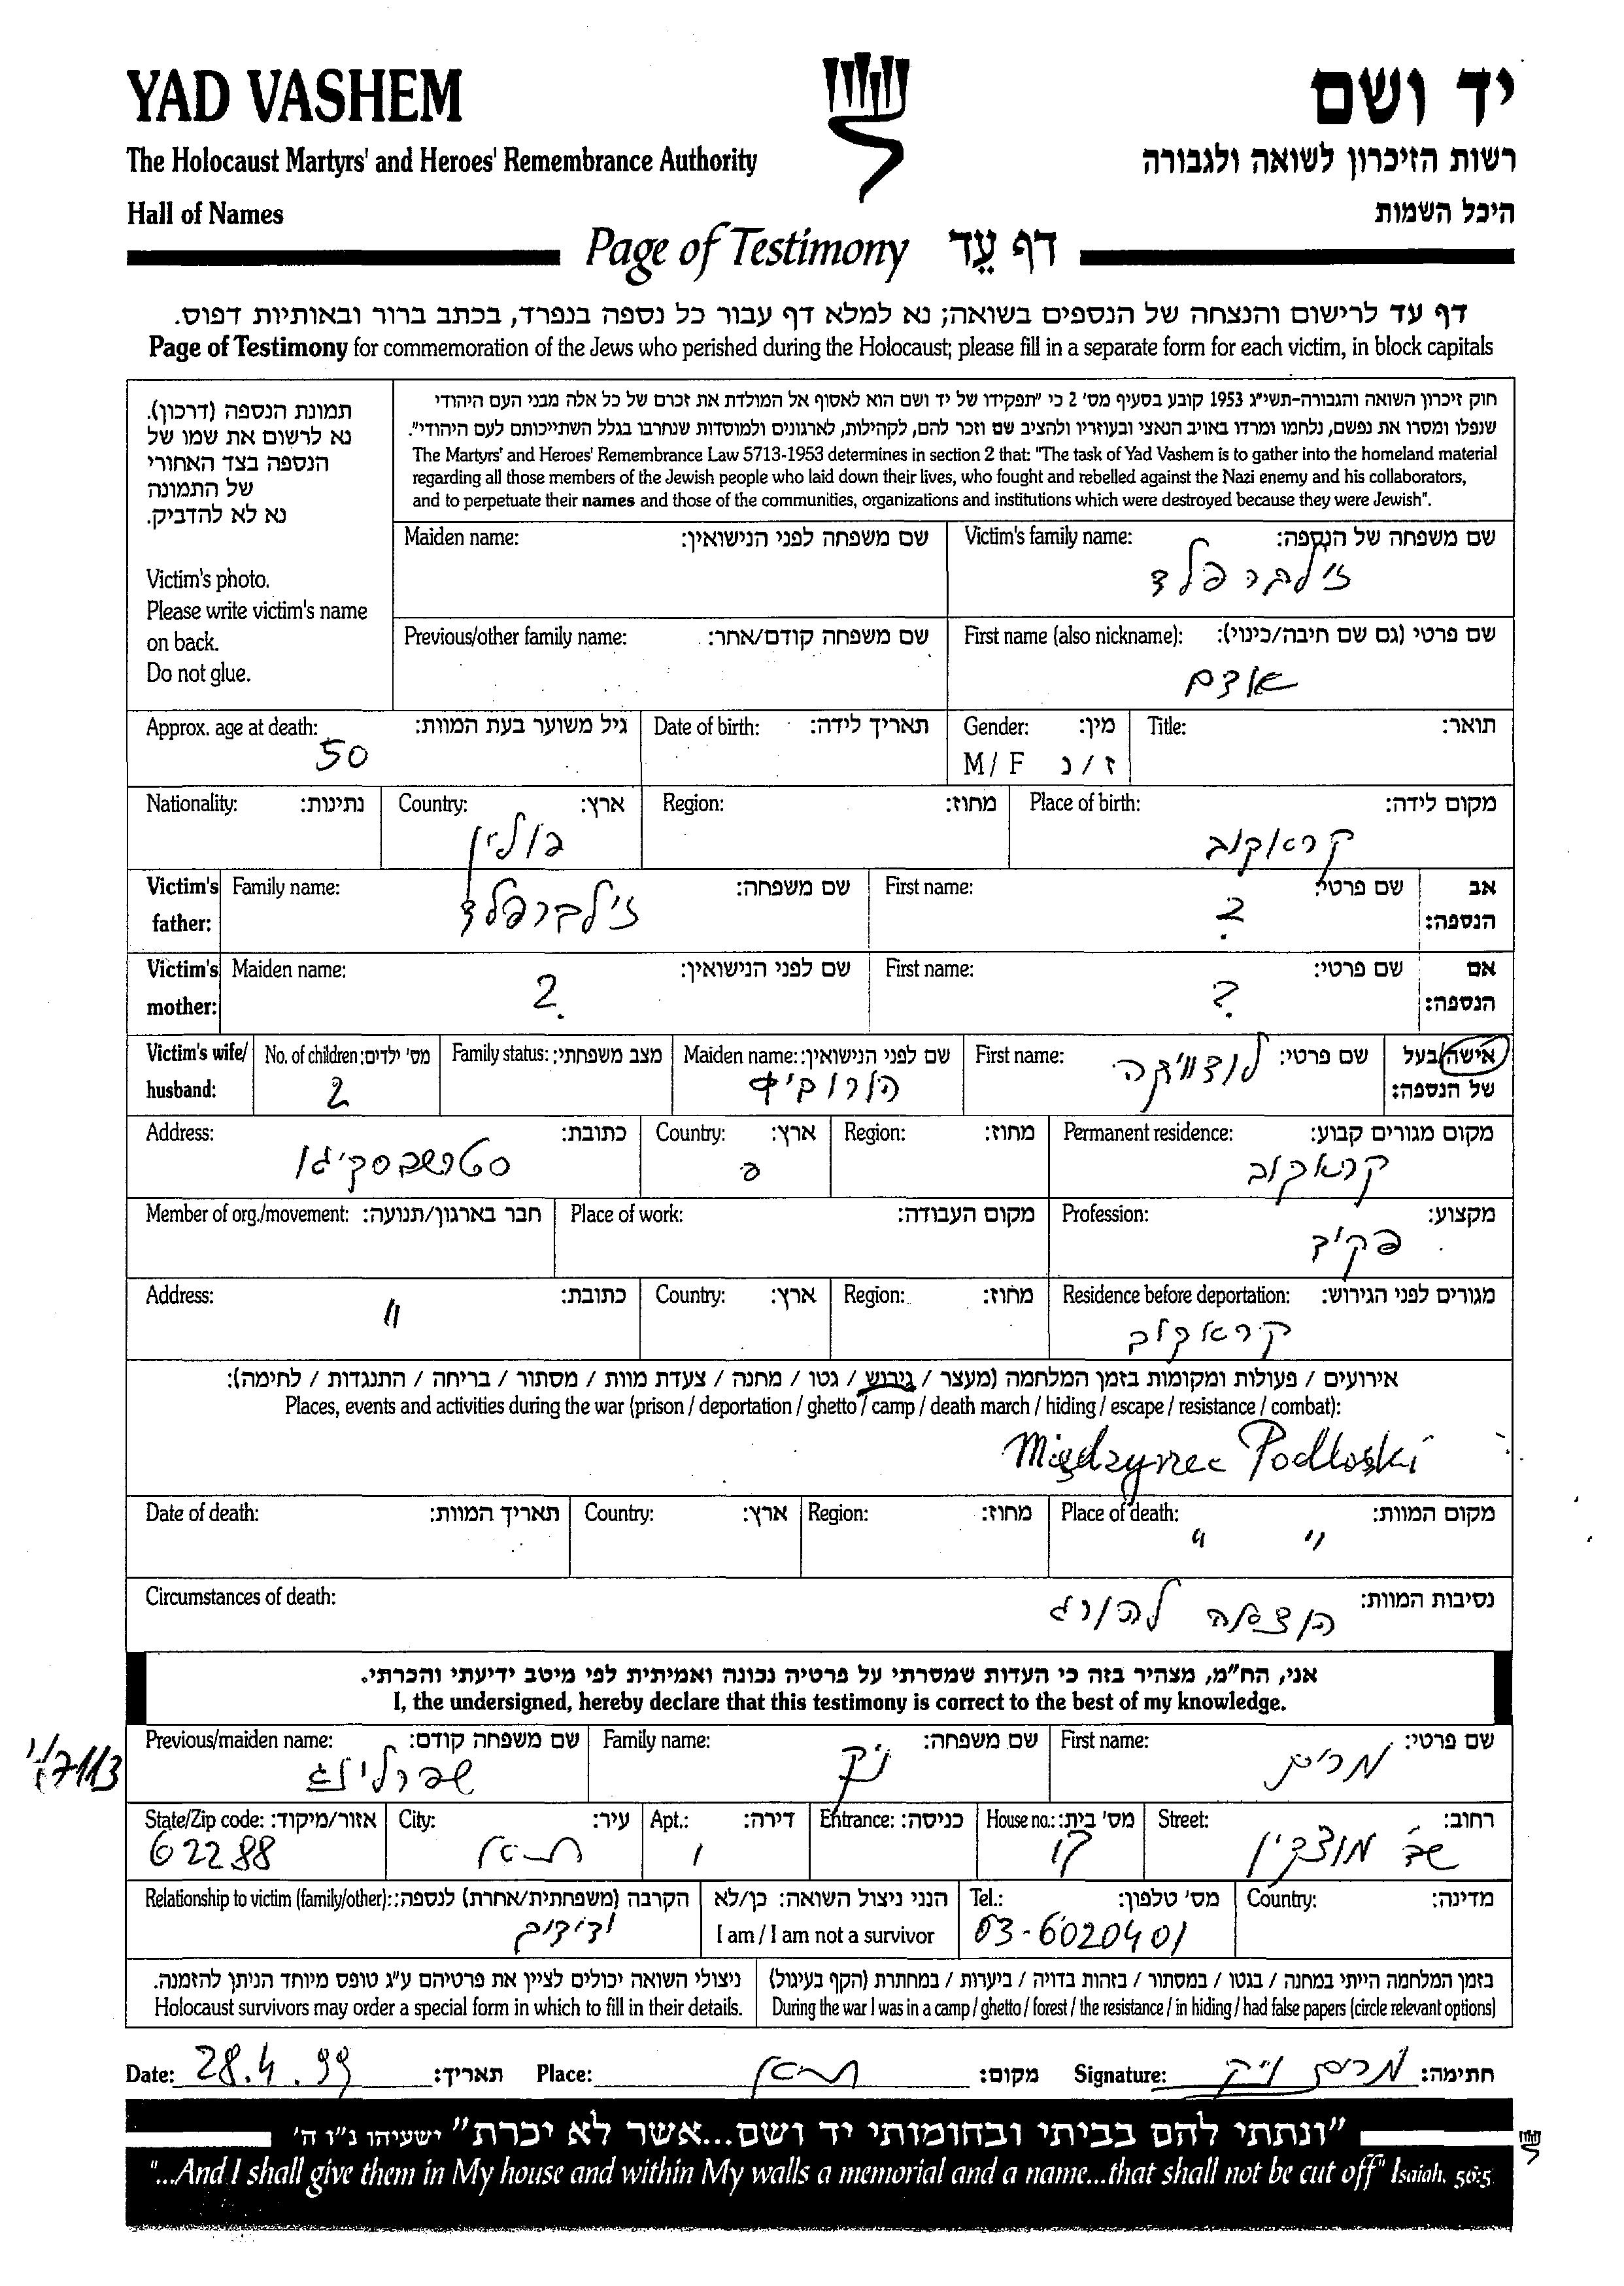 YAD VASHEM
יד ושם
The Holocaust Martyrs' and Heroes' Remembrance Authority
רשות הזיכרון לשואה ולגבורה
Hall of Names
היכל השמות
Page of Testimony דף עֵד
דף עד לרישום והנצחה של הנספים בשואה; נא למלא דף עבור כל נספה בנפרד, בכתב ברור ובאותיות דפוס.
Page of Testimony for commemoration of the Jews who perished during the Holocaust; please fill in a separate form for each victim, in block capitals
תמונת הנספה (דרכון).
נא לרשום את שמו של
הנספה בצד האחורי
של התמונה
נא לא להדביק.
Victim's photo.
Please write victim's name
on back.
Do not glue.
חוק זיכרון השואה והגבורה-תשי"ג 1953 קובע בסעיף מס' 2 כי "תפקידו של יד ושם הוא לאסוף אל המולדת את זכרם של כל אלה מבני העם היהודי
שנפלו ומסרו את נפשם, נלחמו ומרדו באויב הנאצי ובעוזריו ולהציב שם וזכר להם, לקהילות, לארגונים ולמוסדות שנחרבו בגלל השתייכותם לעם היהודי".
The Martyrs' and Heroes' Remembrance Law 5713-1953 determines in section 2 that: "The task of Yad Vashem is to gather into the homeland material
regarding all those members of the Jewish people who laid down their lives, who fought and rebelled against the Nazi enemy and his collaborators,
and to perpetuate their names and those of the communities, organizations and institutions which were destroyed because they were Jewish".
Victim's family name: שם משפחה של הנספה:
זילברפלד
Maiden name: שם משפחה לפני הנישואין:
First name (also nickname): שם פרטי (גם שם חיבה/כינוי):
אדם
Previous/other family name: שם משפחה קודם/אחר:
Title: תואר:
Gender: מין:
M / F ז / נ
Date of birth: תאריך לידה:
Approx. age at death: גיל משוער בעת המוות:
50
Place of birth: מקום לידה:
קראקוב
Region: מחוז:
Country: ארץ:
פולין
Nationality: נתינות:
Victim's father: אב הנספה:
First name: שם פרטי:
?
Family name: שם משפחה:
זילברפלד
Victim's mother: אם הנספה:
First name: שם פרטי:
?
Maiden name: שם לפני הנישואין:
?
Victim's wife/ husband: אישה/בעל של הנספה:
First name: שם פרטי:
לודוויקה
Maiden name: שם לפני הנישואין:
הורוביץ
Family status: מצב משפחתי:
No. of children: מס' ילדים:
2
Permanent residence: מקום מגורים קבוע:
קראקוב
Region: מחוז:
Country: ארץ:
פ
Address: כתובת:
Profession: מקצוע:
פקיד
Place of work: מקום העבודה:
Member of org./movement: חבר בארגון/תנועה:
Residence before deportation: מגורים לפני הגירוש:
קראקוב
Region: מחוז:
Country: ארץ:
Address: כתובת:
"
אירועים / פעולות ומקומות בזמן המלחמה (מעצר / גירוש / גטו / מחנה / צעדת מוות / מסתור / בריחה / התנגדות / לחימה):
Places, events and activities during the war (prison / deportation / ghetto / camp / death march / hiding / escape / resistance / combat):
Międzyrzec Podloski
Place of death: מקום המוות:
" "
Region: מחוז:
Country: ארץ:
Date of death: תאריך המוות:
Circumstances of death: נסיבות המוות:
הוצאה להורג
אני, הח"מ, מצהיר בזה כי העדות שמסרתי על פרטיה נכונה ואמיתית לפי מיטב ידיעתי והכרתי.
I, the undersigned, hereby declare that this testimony is correct to the best of my knowledge.
First name: שם פרטי:
מרים
Family name: שם משפחה:
ויק
Previous/maiden name: שם משפחה קודם:
שפרלינג
Street: רחוב:
שד' מוצקין
House no.: מס' בית:
Entrance: כניסה:
Apt.: דירה:
1
City: עיר:
ת"א
State/Zip code: אזור/מיקוד:
62288
Country: מדינה:
Tel.: מס' טלפון:
03-6020401
הנני ניצול השואה: כן/לא
I am / I am not a survivor
Relationship to victim (family/other): הקרבה (משפחתית/אחרת) לנספה:
ידידים
בזמן המלחמה הייתי במחנה / בגטו / במסתור / בזהות בדויה / ביערות / במחתרת (הקף בעיגול)
During the war I was in a camp / ghetto / forest / the resistance / in hiding / had false papers (circle relevant options)
ניצולי השואה יכולים לציין את פרטיהם ע"ג טופס מיוחד הניתן להזמנה.
Holocaust survivors may order a special form in which to fill in their details.
Date: 28.4.99 תאריך: Place: ת"א מקום: Signature: מרים ויק חתימה:
"ונתתי להם בביתי ובחומותי יד ושם...אשר לא יכרת" ישעיהו נ"ו ה'
"...And I shall give them in My house and within My walls a memorial and a name...that shall not be cut off" Isaiah. 56:5